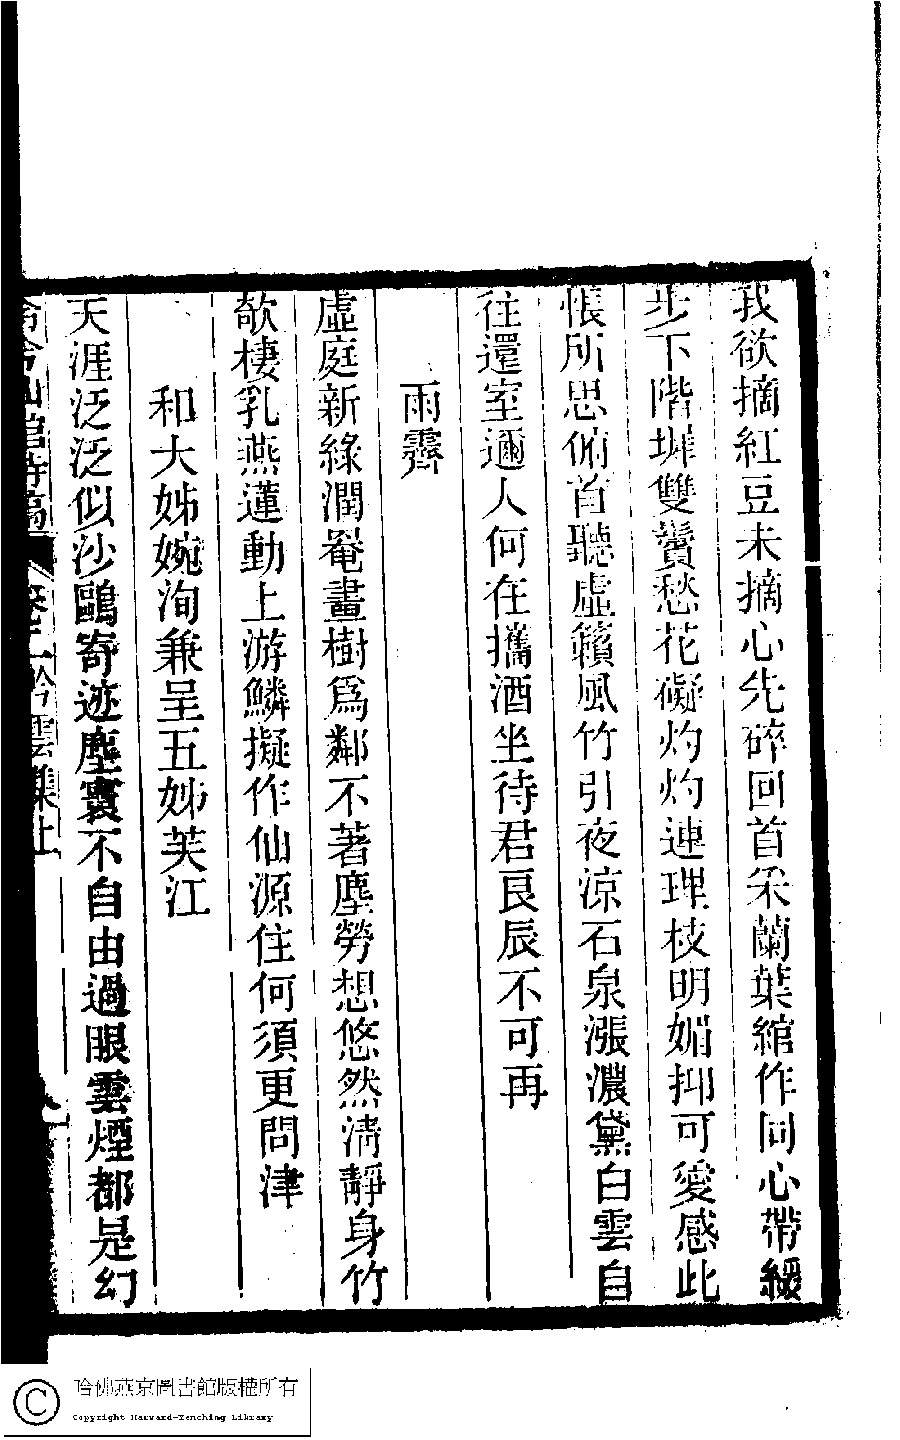 我欲摘紅豆未摘心先碎回首采蘭葉綰作同心帶緩
步下階墀雙鬟愁花礙灼灼連理枝明媚抑可愛感此
悵所思俯首聽虛籟風竹引夜涼石泉漲濃黛白雲自
往還室邇人何在攜酒坐待君良辰不可再
雨霽
虛庭新綠潤罨畫樹為鄰不著塵勞想悠然清靜身竹
欹棲乳燕蓮動上游鱗擬作仙源住何須更問津
和大姊婉洵兼呈五姊芙江
天涯泛泛似沙鷗寄迹塵寰不自由過眼雲煙都是幻
哈佛燕京圖書館版權所有
Copyright Harvard-Yenching Library